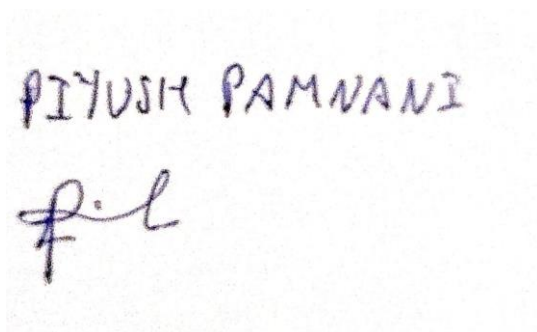 PIYUSH PAMNANI